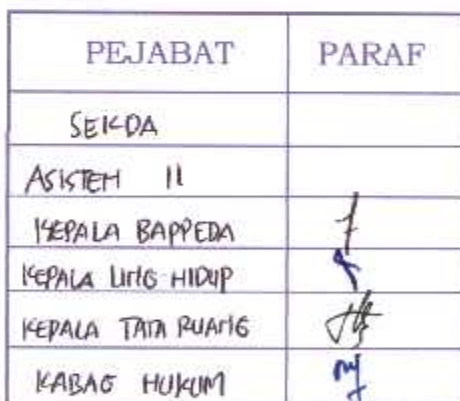 PEJABAT PARAF
SEKDA
ASISTEN II
KEPALA BAPPEDA
KEPALA LING HIDUP
KEPALA TATA RUANG
KABAG HUKUM